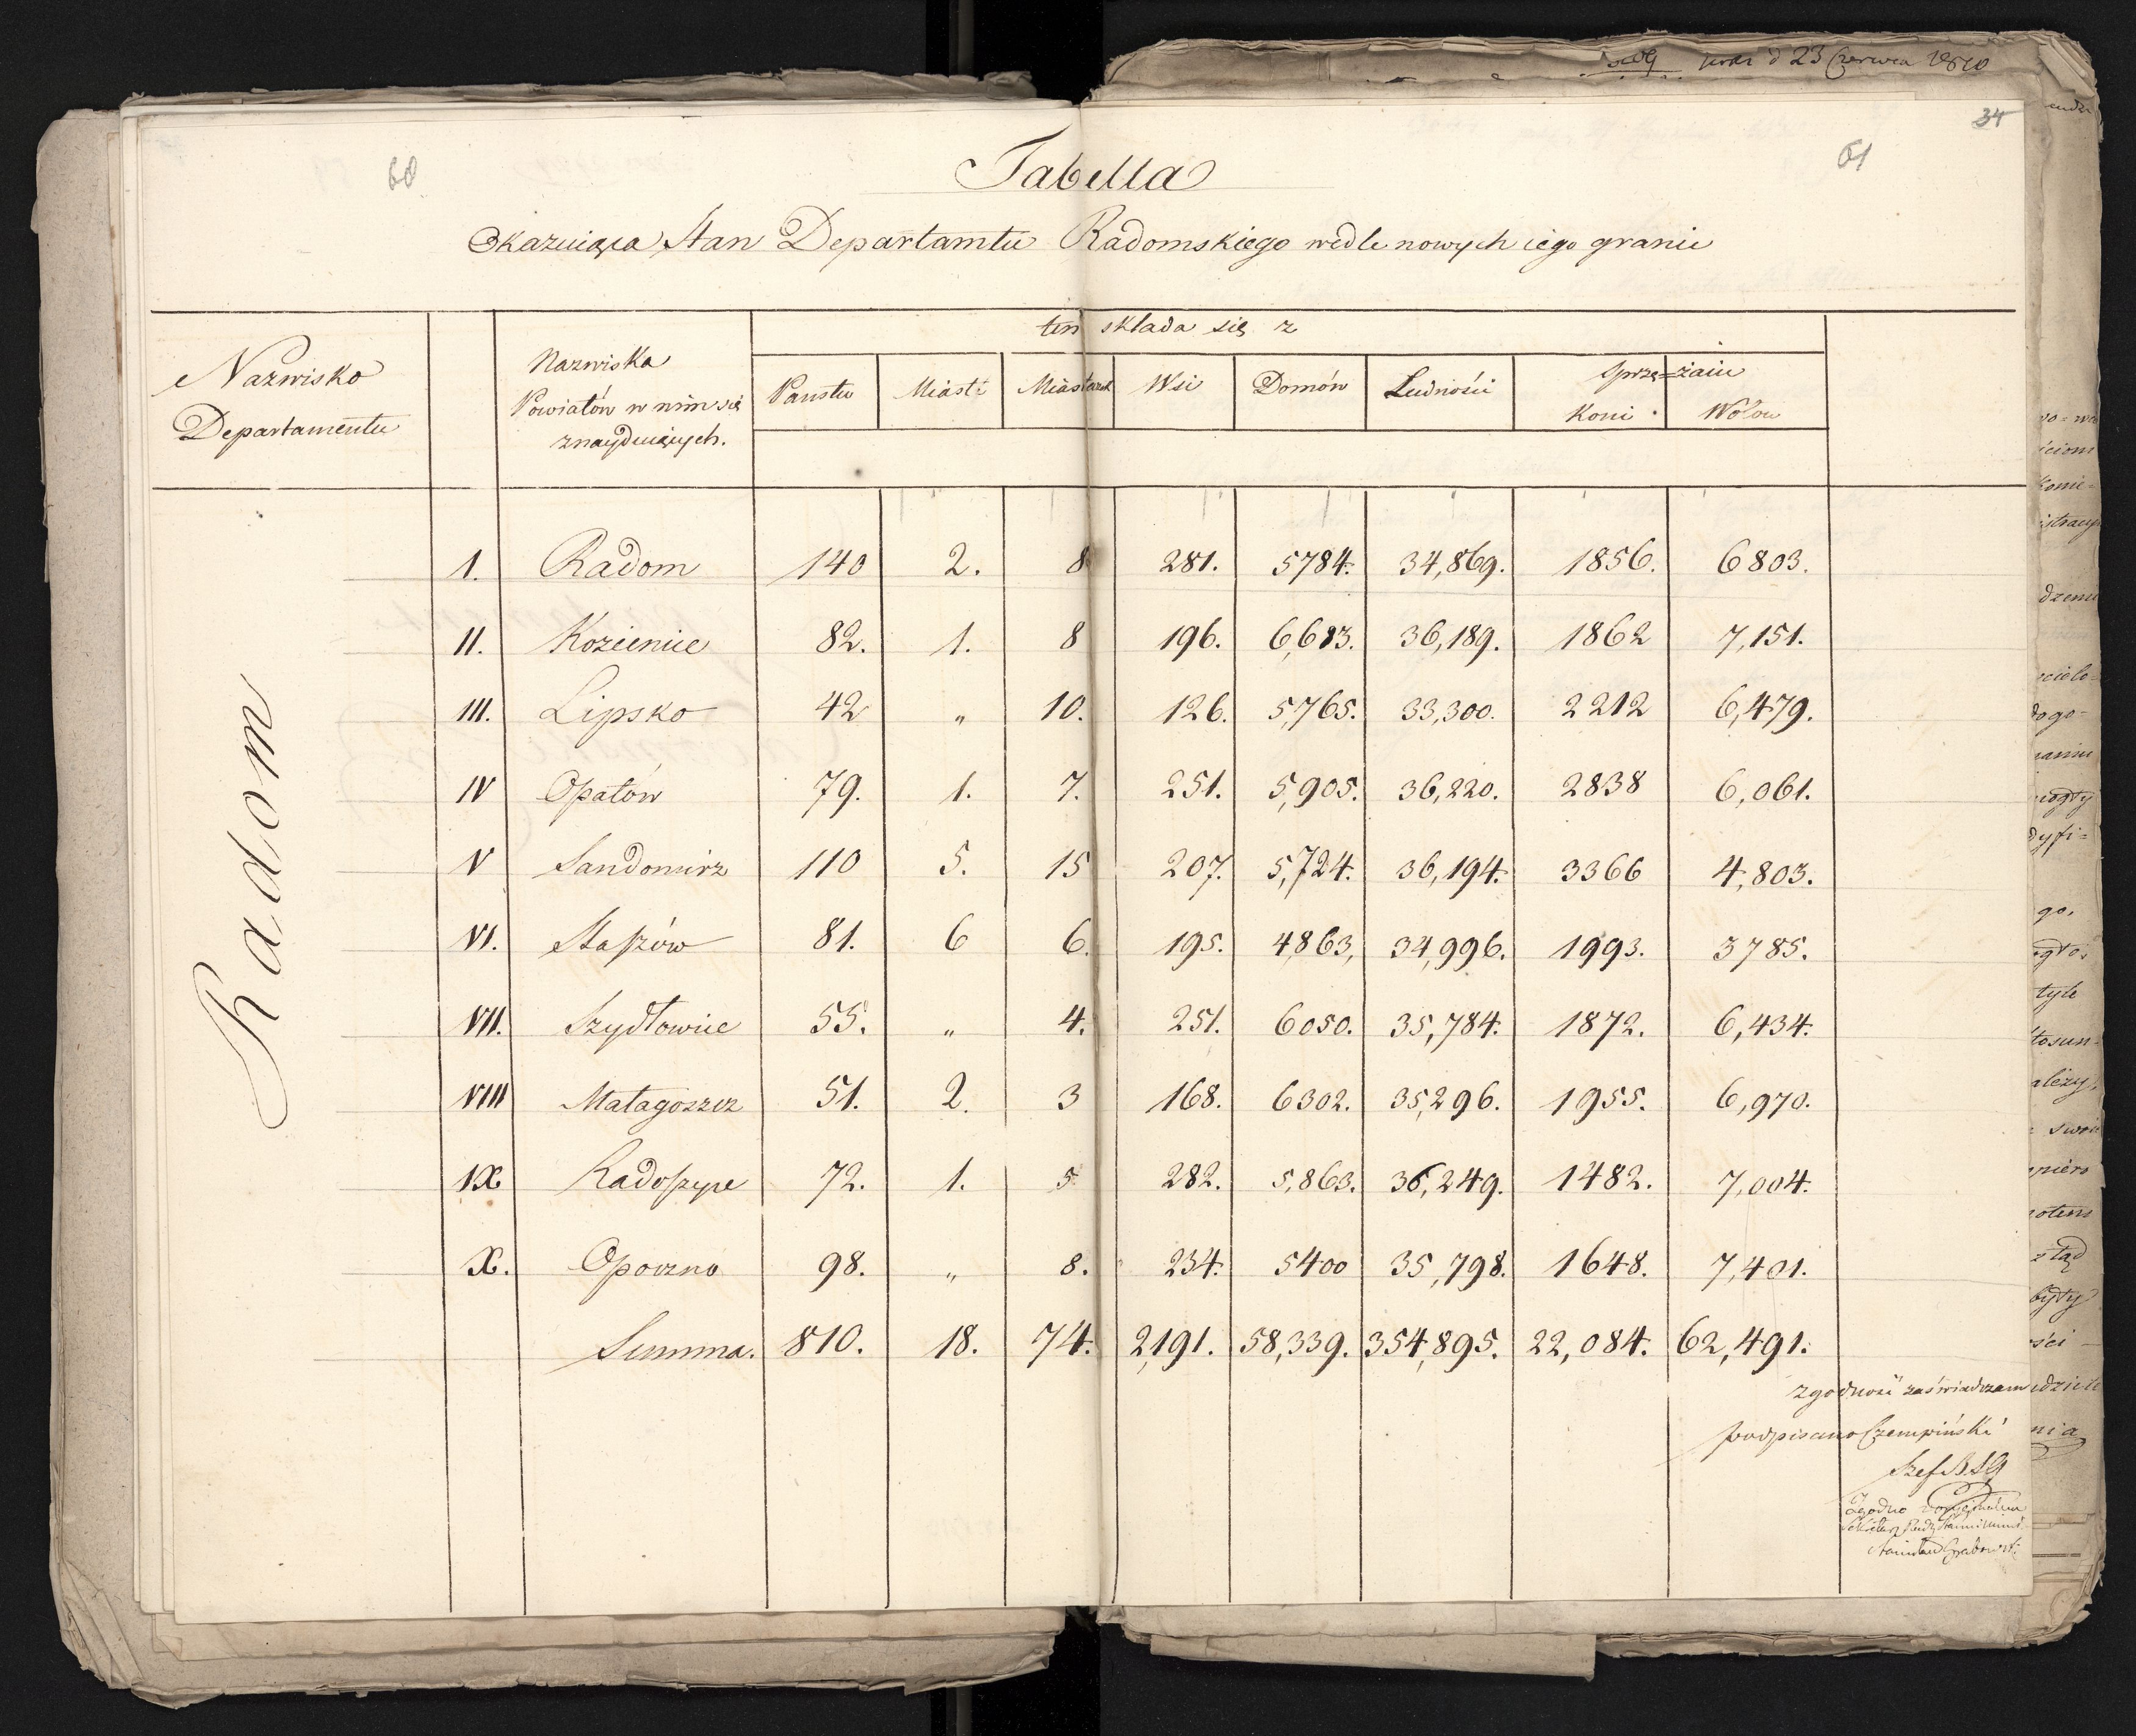 23 Czerwca 1810
34
60
61
Tabella
Okazuiąca Stan Departamtu Radomskiego wedle nowych iego granic
Nazwisko Departamentu
Nazwiska Powiatów w nim się znayduiących.
ten składa się z
Państw Miast Miasteczek Wsi Domów Ludności Sprzę=żaiu
Koni Wołow
Radom
I. Radom 140 2. 8 281. 5784. 34,869. 1856. 6803.
II. Kozienice 82. 1. 8 196. 6,683. 36,189. 1862 7,151.
III. Lipsko 42 „ 10. 126. 5,765. 33,300. 2212 6,479.
IV Opatów 79. 1. 7. 251. 5,905. 36,220. 2838 6,061.
V Sandomirz 110 5. 15 207. 5,724. 36,194. 3366 4,803.
VI. Staszów 81. 6 6. 195. 4,863, 34,996. 1993. 3785.
VII. Szydłowiec 55. „ 4. 251. 6050. 35,784. 1872. 6,434.
VIII Małagoszcz 51. 2. 3 168. 6302. 35,296. 1955. 6,970.
IX Radoszyce 72. 1. 5 282. 5,863. 36,249. 1482. 7,004.
X. Opoczno 98. „ 8. 234. 5400 35,798. 1648. 7,401.
Summa. 810. 18. 74. 2,191. 58,339. 354,895. 22,084. 62,491.
zgodność zaświadczam
podpisano Czempiński
Szef
Zgodno z oryginałem
Sekretarz Rady Stanu
Stanisław Grabowski